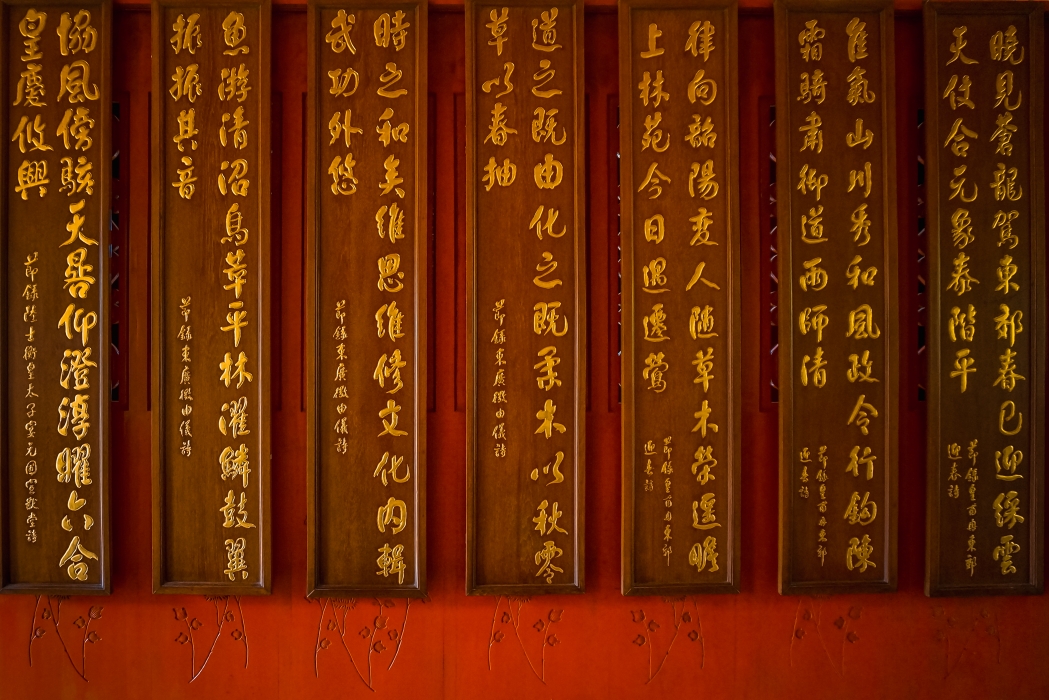 曉見蒼龍駕東郊春已迎綵雲
天仗合元象泰階平
節錄皇甫冉東郊
迎春詩
佳氣山川秀和風政令行鈎陳
霜騎肅御道雨師清
節錄皇甫冉東郊
迎春詩
律向韶陽變人隨草木榮遥瞻
上林苑今日遇遷鶯
節錄皇甫冉東郊
迎春詩
道之既由化之既柔木以秋零
草以春抽
節錄束廣微由儀詩
時之和矣維思維修文化內輯
武功外悠
節錄束廣微由儀詩
魚游清沼鳥萃平林濯鱗鼓翼
振振其音
節錄束廣微由儀詩
協風傍駭天晷仰澄淳曜六合
皇慶攸興
節錄陸士衡皇太子宴元圃宣猷堂詩